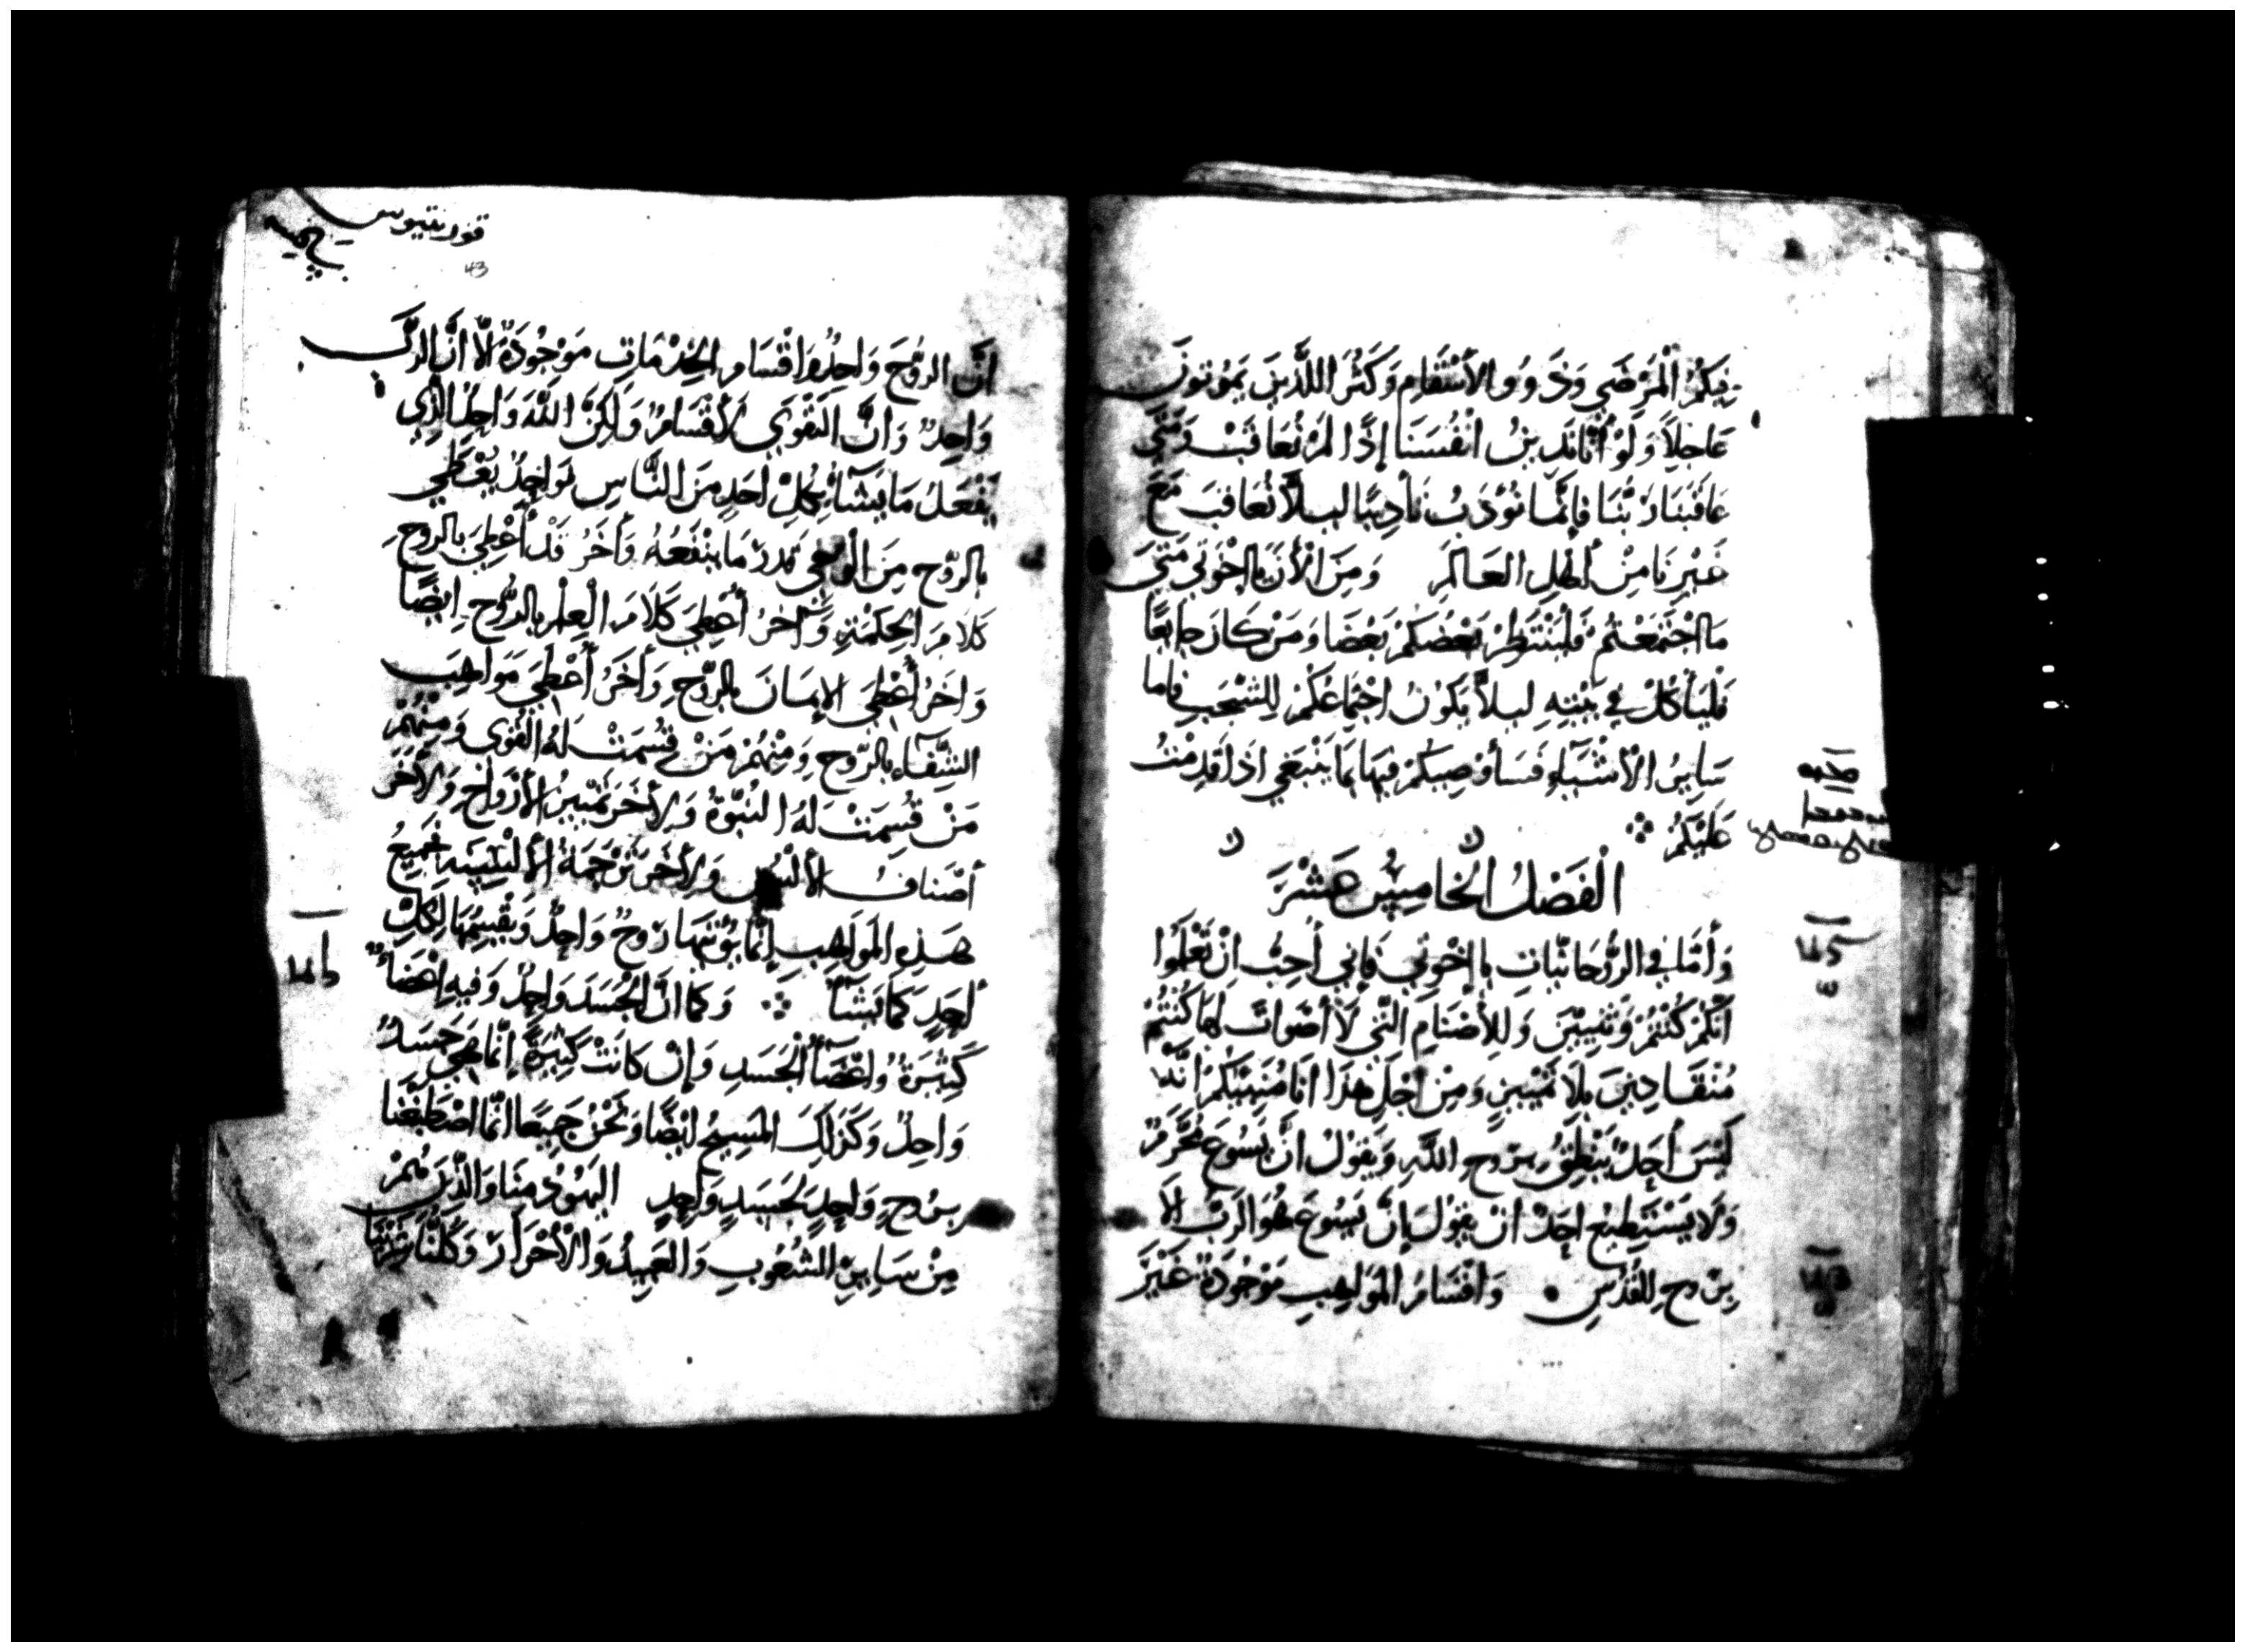 فِيكُمُ الْمَرْضَي وَذَوُو الأَسْقَامِ وَكَثُرَ اللَّذِينَ يَمُوتونَ
عَاجِلاً وَلَوْ أَنَّا نَدِينُ انْفُسَنَا إِذًا لَمْ نُعَاقَبْ وَمَتَي
عَاقَبَنَا رَبُّنَا فَإِنَّمَا نُؤَدَبُ تَأدِيبًا لِيلاَّ نُعَاقَبَ مَعَ
غَيْرِنَا مِنْ أَهْلِ العَالَمِ وَمِنَ الْأَنَ يَااخْوَتي مَتَي
مَااجْتَمَعْتُمْ فَلْيَنْتَظِرْ بَعْضُكُمْ بَعْضَا وَمَنْ كَانَ جَايعًا
فَلْيَأكُلْ فِي بَيْتِهِ لِيلاَّ يَكُونَ اجْتِمَاعُكُمْ لِلشَّجَبِ فَاما
سَايِرُ الْأَشْيَآءِ فَسَأُوصِيكُمْ فِيهَا بِمَا يَنْبَغِي اذَا قَدِمْتُ
عَلَيْكُمْ
الْفَصْلُ الْخَامِسُ عَشَرَ
وَأَمَّا فِي الرُّوحَانِيَّاتِ يَا إِخْوَتِي فَإِنِي أُحِبُّ انْ تَعْلَمُوا
انَّكُمْ كُنْتُمْ وَثَنِيِّيْنَ وَلِلأَصْنَامِ الَّتِي لاَ أَصْوَاتَ لَهَا كُنْتُمْ
مُنْقَادِينَ بِلاَ تَمْيِيْزٍ وَمِنْ اجْلِ هَذَا انَا مُنَبِّهُكُمْ انَّه
لَيْسَ أَحَدٌ يَنْطِقُ بِرُوحِ اللَّهِ وَيَقُولُ انَّ يَسُوعَ مُحَرَّمٌ
وَلاَ يَسْتَطِيعُ احَدٌ انْ يَقُولَ إِنَّ يَسُوعَ هُوَ الرَبُّ الاَّ
بِرُوحِ القُدُسِ وَاقْسَامُ المَوَاهِبِ مَوْجُودَةٌ غَيْرَ
قورنتيوس
43
انَّ الرُّوحَ وَاحِدٌ وَاقْسَامِ الخِدْمَاتِ مَوْجُودَةٌ الاَّ انَّ الرَّبَ
وَاحِدٌ وَانَّ القُوَي لأَقْسَامٌ وَلَكِنَّ اللَّهَ وَاحِدٌ الَّذِي
يَفْعَلُ مَا يَشَآءُ بِكُلِ أَحَدٍ مِنَ النَّاسِ فَوَاحِدٌ يُعْطَي
بِالرُّوحِ مِنَ الوَحْي بِقَدرْ مَا يَنْفَعُهُ وَأَخَرُ قَدْ أُعْطِيَ بِالرُوحِ
كَلاَمَ الحِكْمَةِ وَآخَرُ أُعْطِيَ كَلاَمَ العِلْمِ بِالرُّوحِ ايضًا
وَاخَرُ أُعْطِيَ الإِيمَانَ بِالرُّوحِ وَأَخَرُ أُعْطِيَ مَوَاهِبَ
الشِّفَآءِ بِالرُّوحِ وَمِنْهُمْ مَنْ قُسِمَتْ لَهُ القُوَي وَمِنْهُمْ
مَنْ قُسِمَتْ لَهُ النُبُوَّةُ وَلِأَخَرَ تَمْيِيزُ الأَرْوَاحِ وَلأَخَرَ
أَصْنَافُ الأَلْسُنِ وَلِأَخَرَ تَرْجَمَةُ الأَلْسِنَةِ فَجَمِيعُ
هَذِهِ المَوَاهِبِ إِنَّمَا يُؤْتِيهَا رُوحٌ وَاحِدٌ وَيَقْسِمُهَا لِكُلِّ
أَحَدٍ كَمَا يَشَآءُ وَكَمَا انَّ الجَسَدَ وَاحِدٌ وَفيهِ اعْضَآءٌ
كَثِيْرَةٌ وَاعْضَآءُ الْجَسَدِ وَإِنْ كَانَتْ كَثِيْرَةً إِنَّمَا هِيَ جَسَدٌ
وَاحِدٌ وَكَذَلِكَ المَسِيحُ ايْضًا وَنَحْنُ جَمِيعًا انَّمَا اصْطَبَغْنَا
بِرُوحٍ وَاحِدٍ لِجَسَدٍ وَاحِدٍ اليَهُودُ مِنَا وَالَّذِينَ هُمْ
مِنْ سَايِرِ الشُعُوبِ وَالعَبِيدُ وَالْأَحْرَارُ وَكُلُّنَا شَرِبْنَا